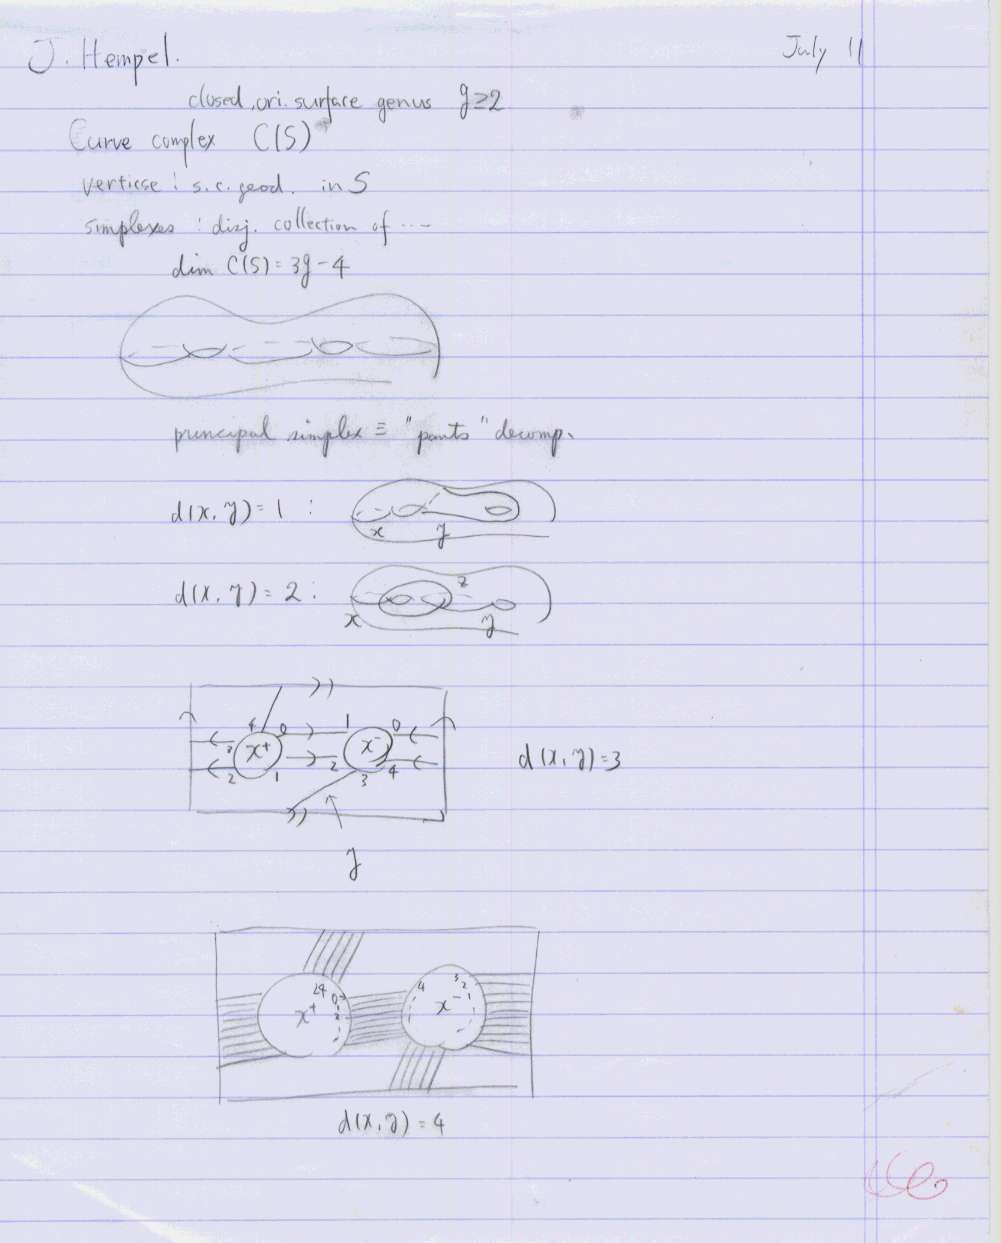 J. Hempel.
July 11
closed, ori. surface genus g≥2
Curve complex C(S)
verticse : s.c. geod. in S
simplexes : disj. collection of ....
dim C(S) = 3g-4
principal simplex ≡ "pants" decomp.
d(x, y) = 1 :
x y
d(x, y) = 2 :
z
x y
4 0 1 0
3 x+ x-
2 1 2 3 4
d(x, y) = 3
y
24 0 4 3 2 1
1
2
x+ x-
d(x, y) = 4